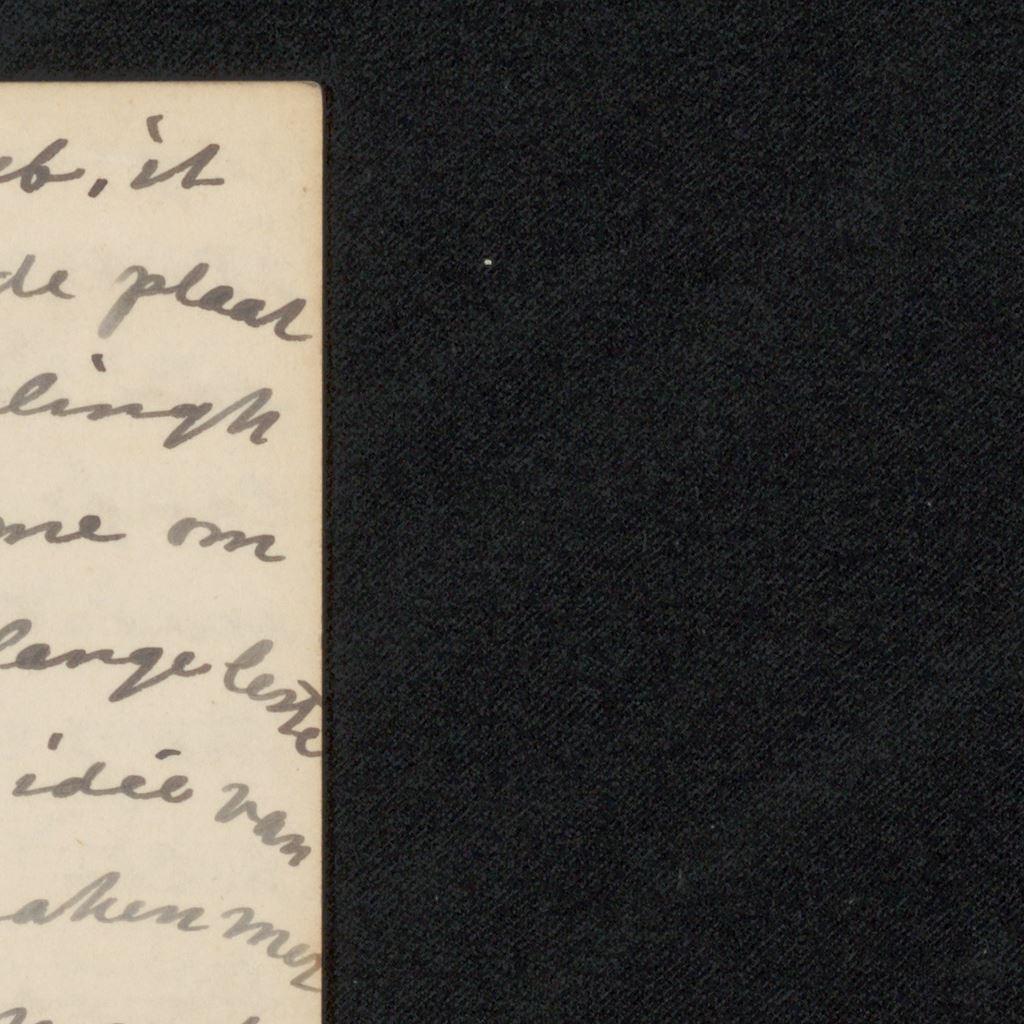 eb, ik
de plaat
lingh
me om
lange leste
idée van
aken met